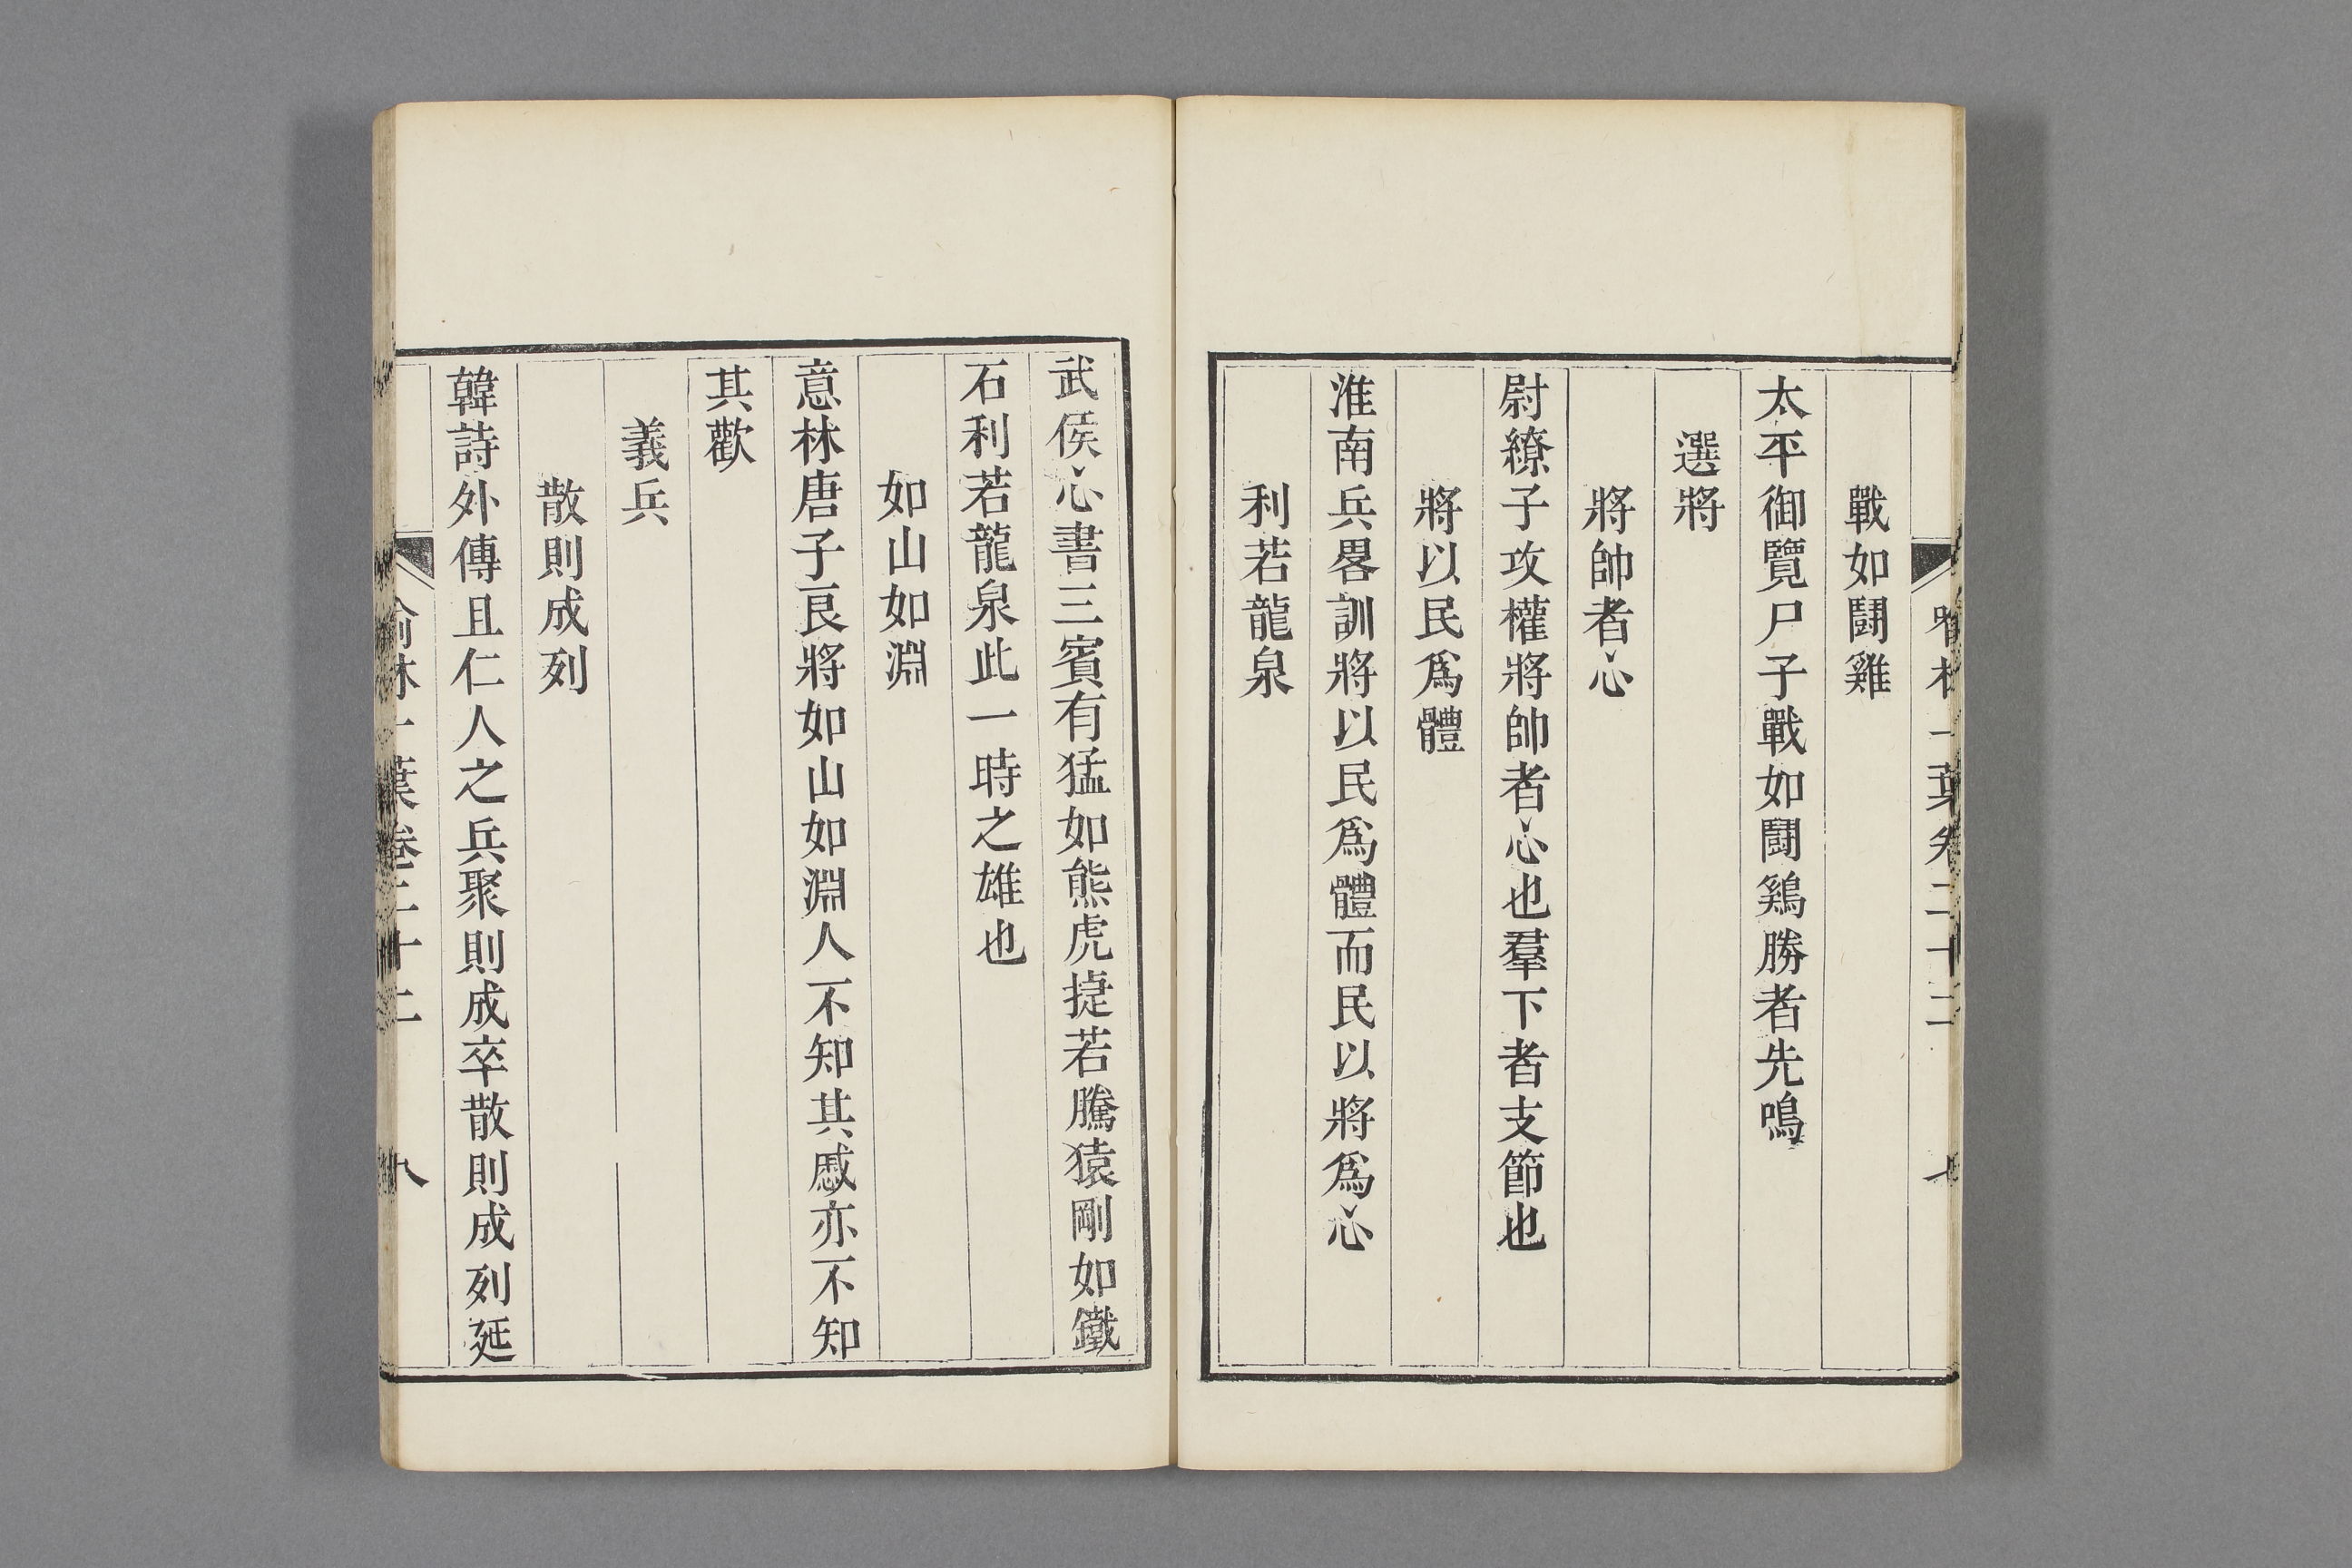 戰如鬪雞
太平御覽尸子戰如鬪鷄勝者先鳴
選將
將帥者心
尉繚子攻權將帥者心也羣下者支節也
將以民爲體
淮南兵畧訓將以民爲體而民以將爲心
利若龍泉
武侯心書三賓有猛如熊虎捷若騰猿剛如鐵
石利若龍泉此一時之雄也
如山如淵
意林唐子良將如山如淵人不知其慼亦不知
其歡
義兵
散則成列
韓詩外傳且仁人之兵聚則成卒散則成列延
喻林一葉卷二十二 八